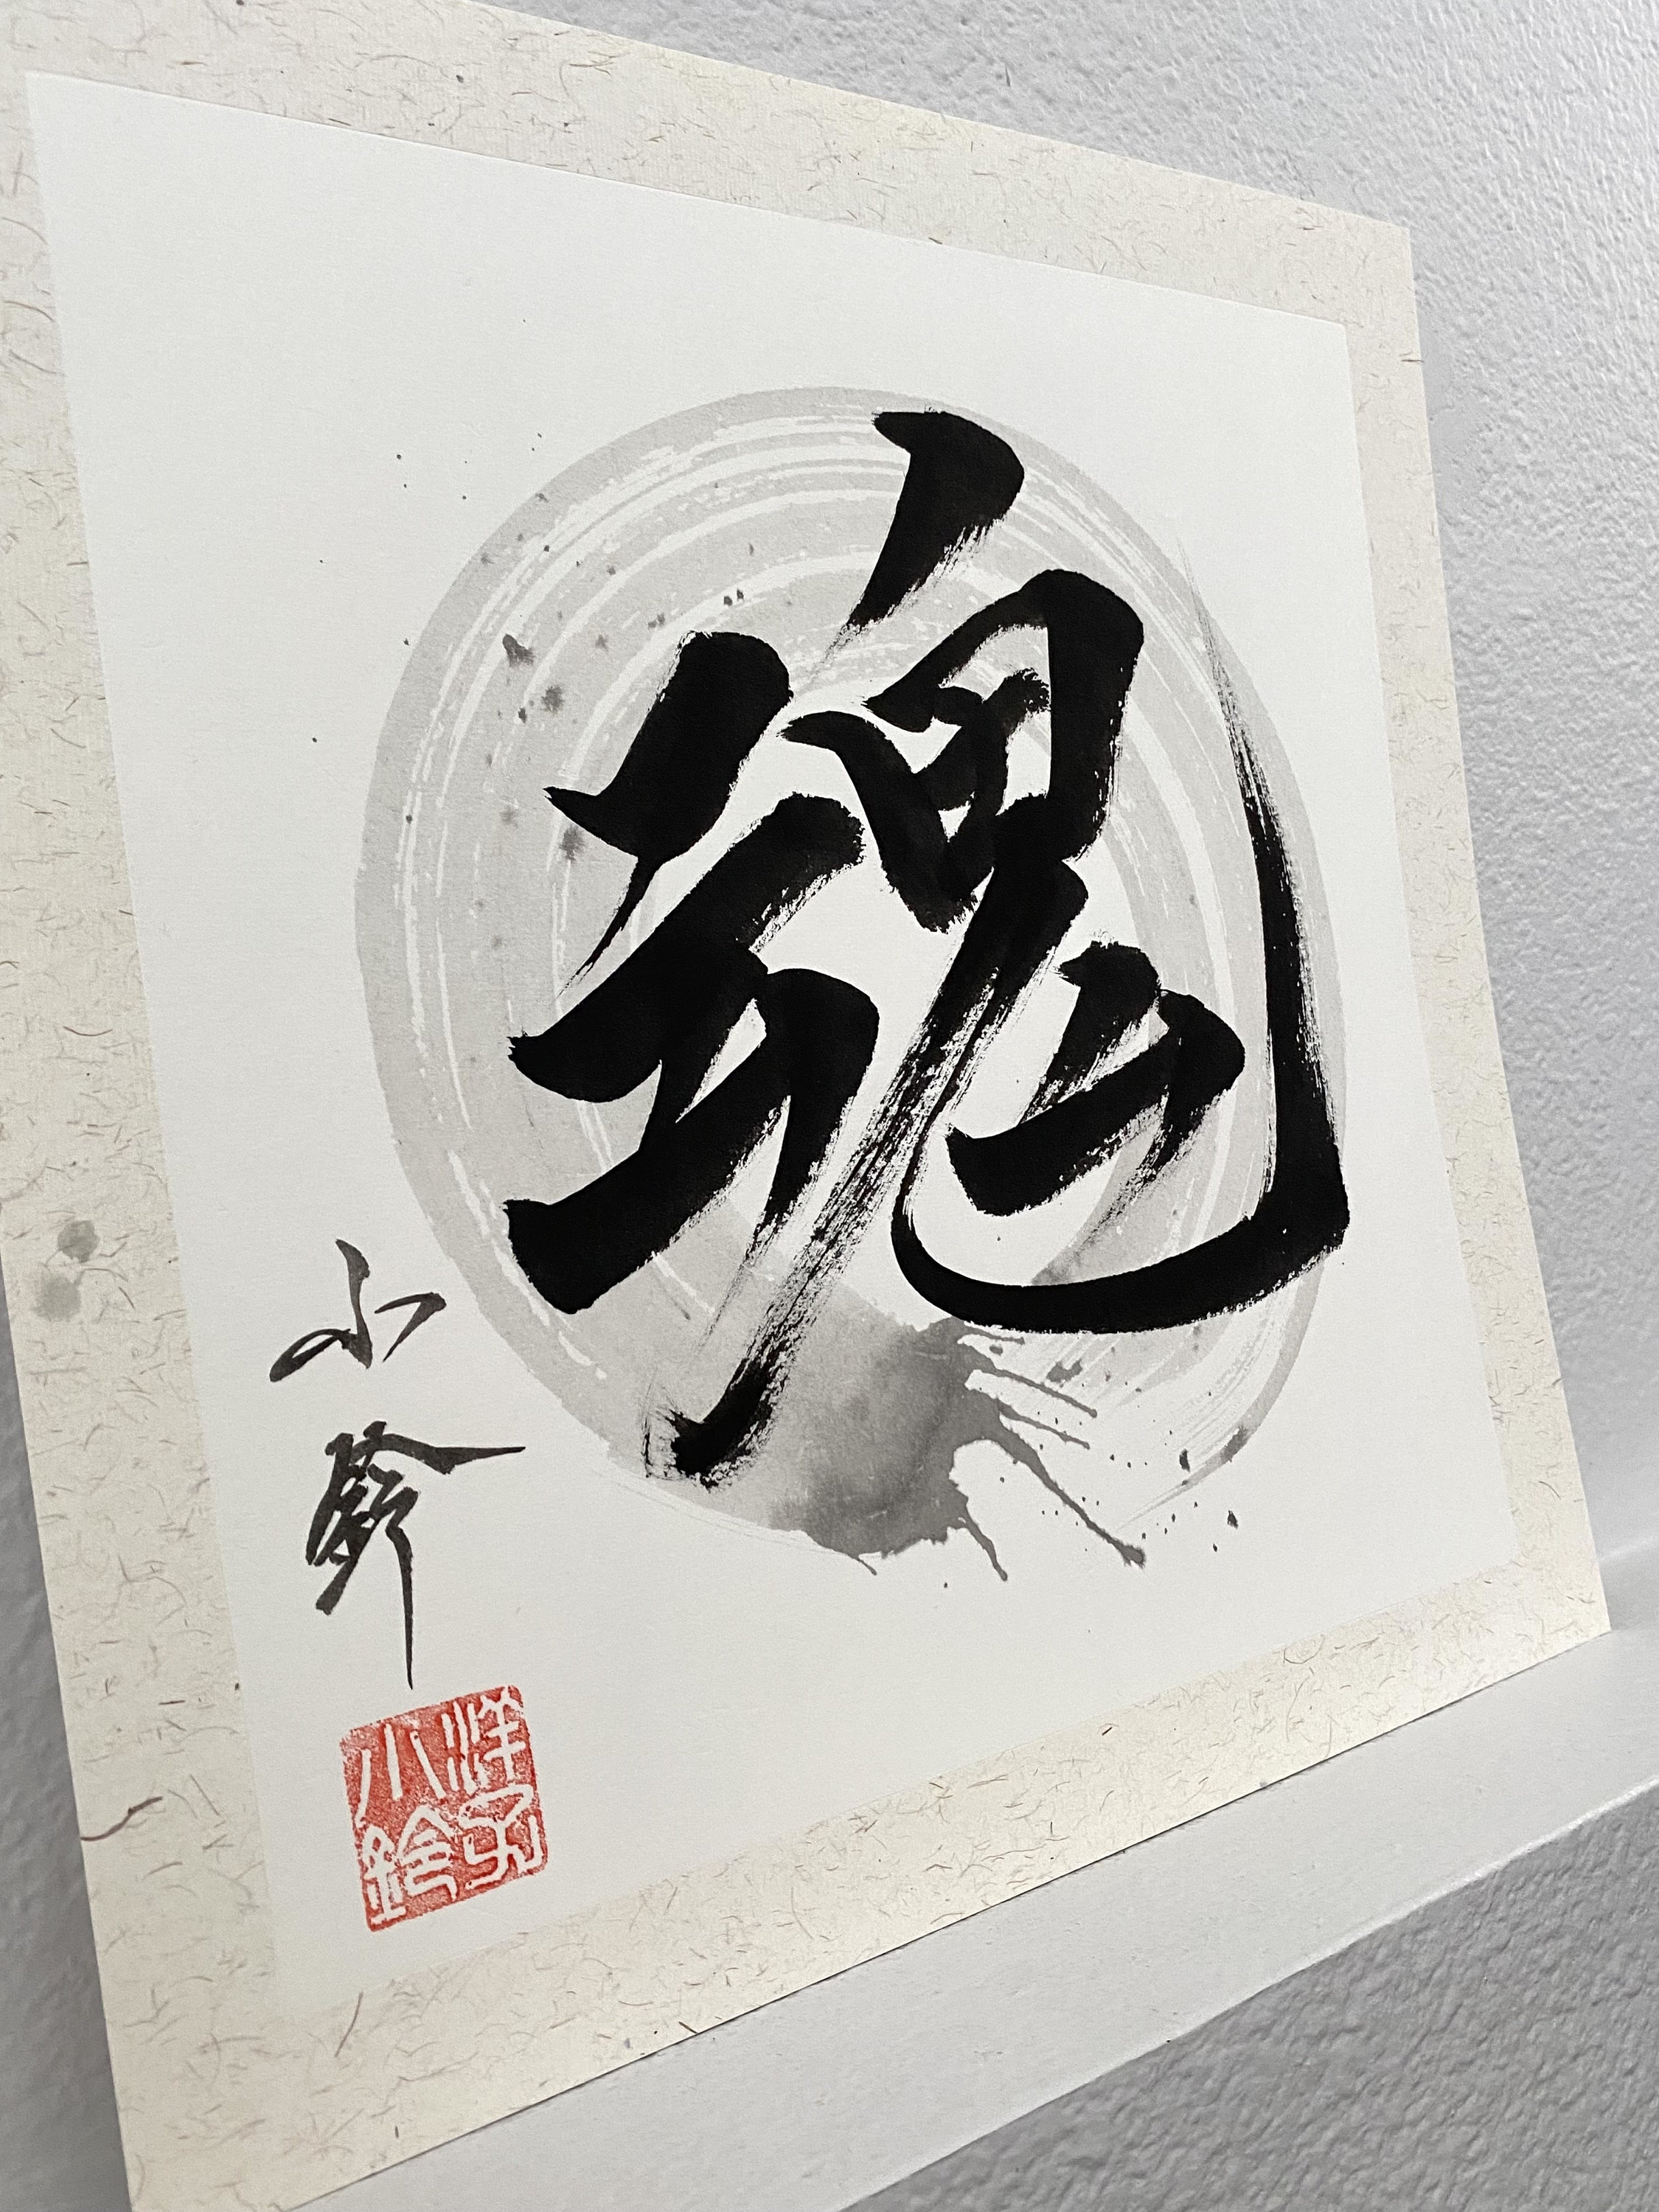 魂
小鈴
洋子
小鈴